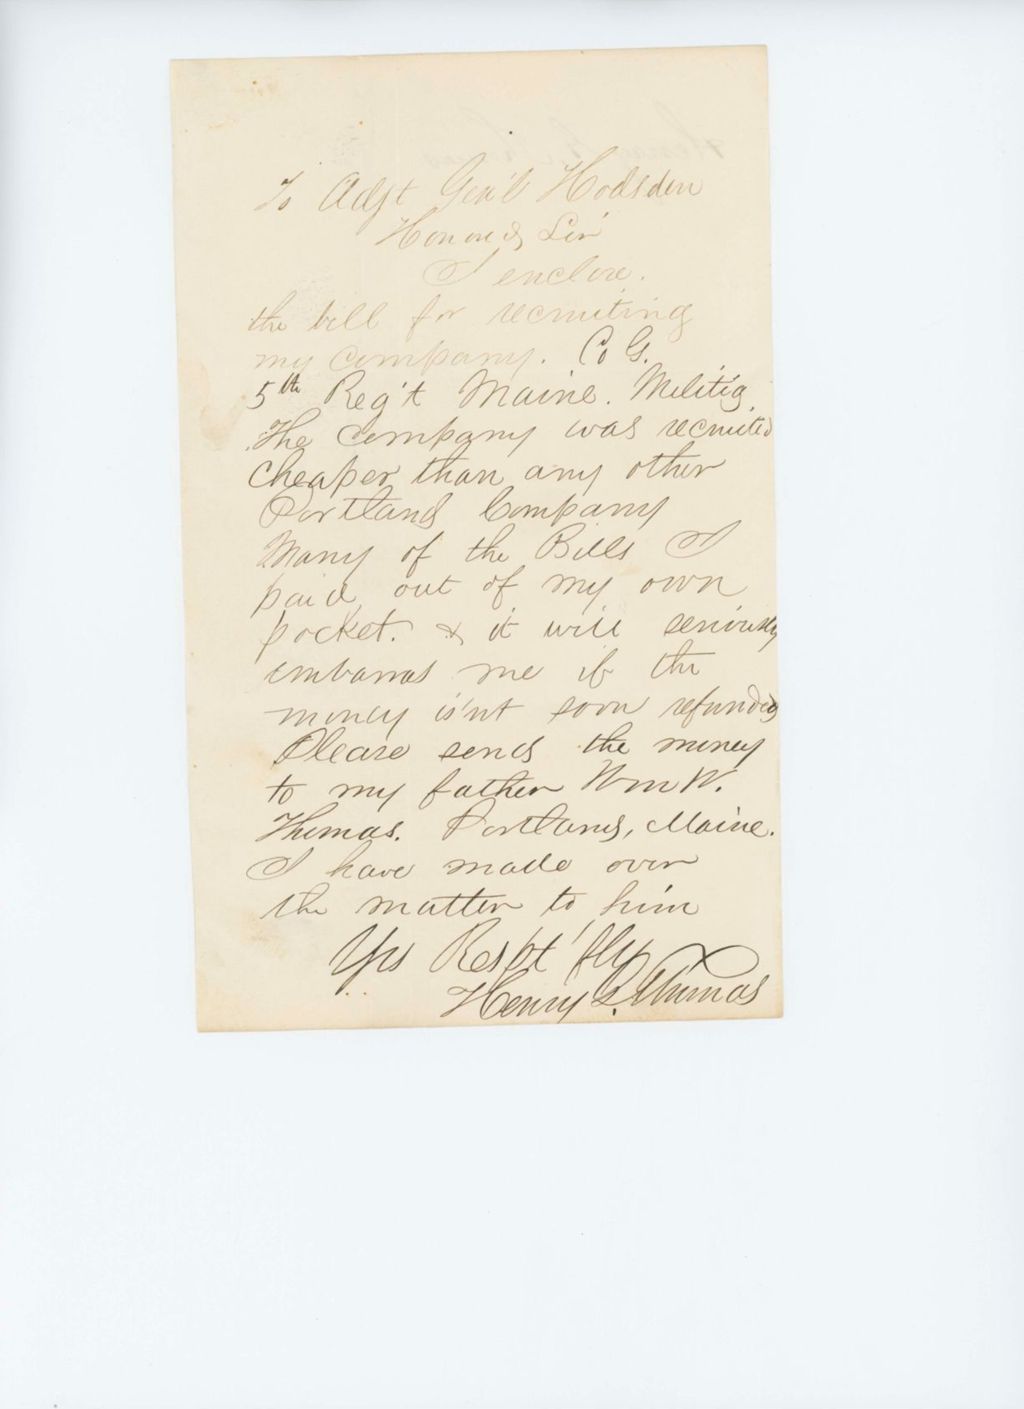 To Adjt Gen'l Hodsden
Honored Sir
I enclose.
the bill for recruiting
my company. Co G.
5th Reg't Maine. Militia
The Company was recruited
cheaper than any other
Portland Company
Many of the Bills I
paid out of my own
pocket. & it will seriously
embarras me if the
money is'nt soon refunded
Please send the money
to my father Wm W.
Thomas. Portland, Maine.
I have made over
the matter to him
Yrs Resp't'fly
Henry G. Thomas